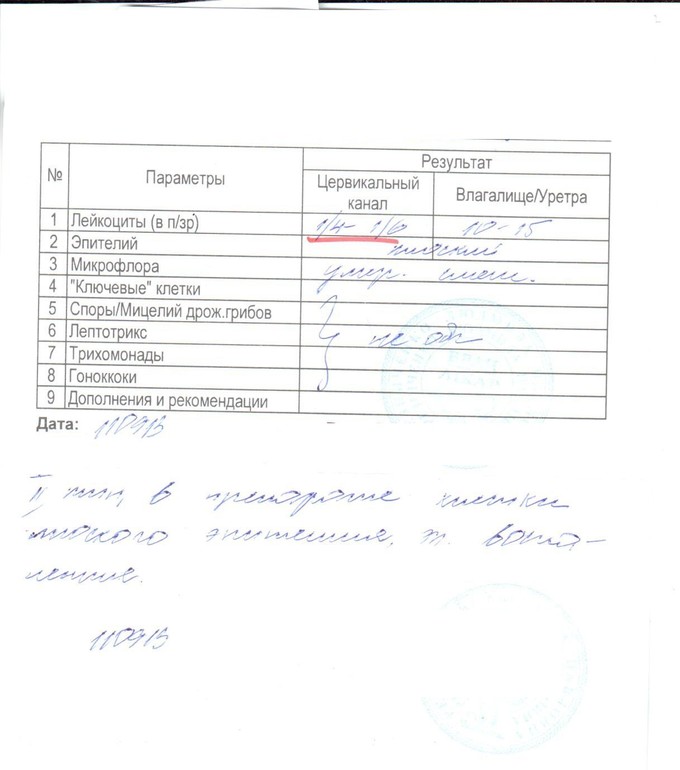 № Параметры Результат
Цервикальный канал Влагалище/Уретра
1 Лейкоциты (в п/зр) 1/4- 1/6 10-15
2 Эпителий плоский
3 Микрофлора умер. смеш.
4 "Ключевые" клетки
5 Споры/Мицелий дрож.грибов
6 Лептотрикс не обн
7 Трихомонады
8 Гоноккоки
9 Дополнения и рекомендации
Дата: 110913
II тип, в препарате клетки
плоского эпителия, т. воспа-
ление.
110913